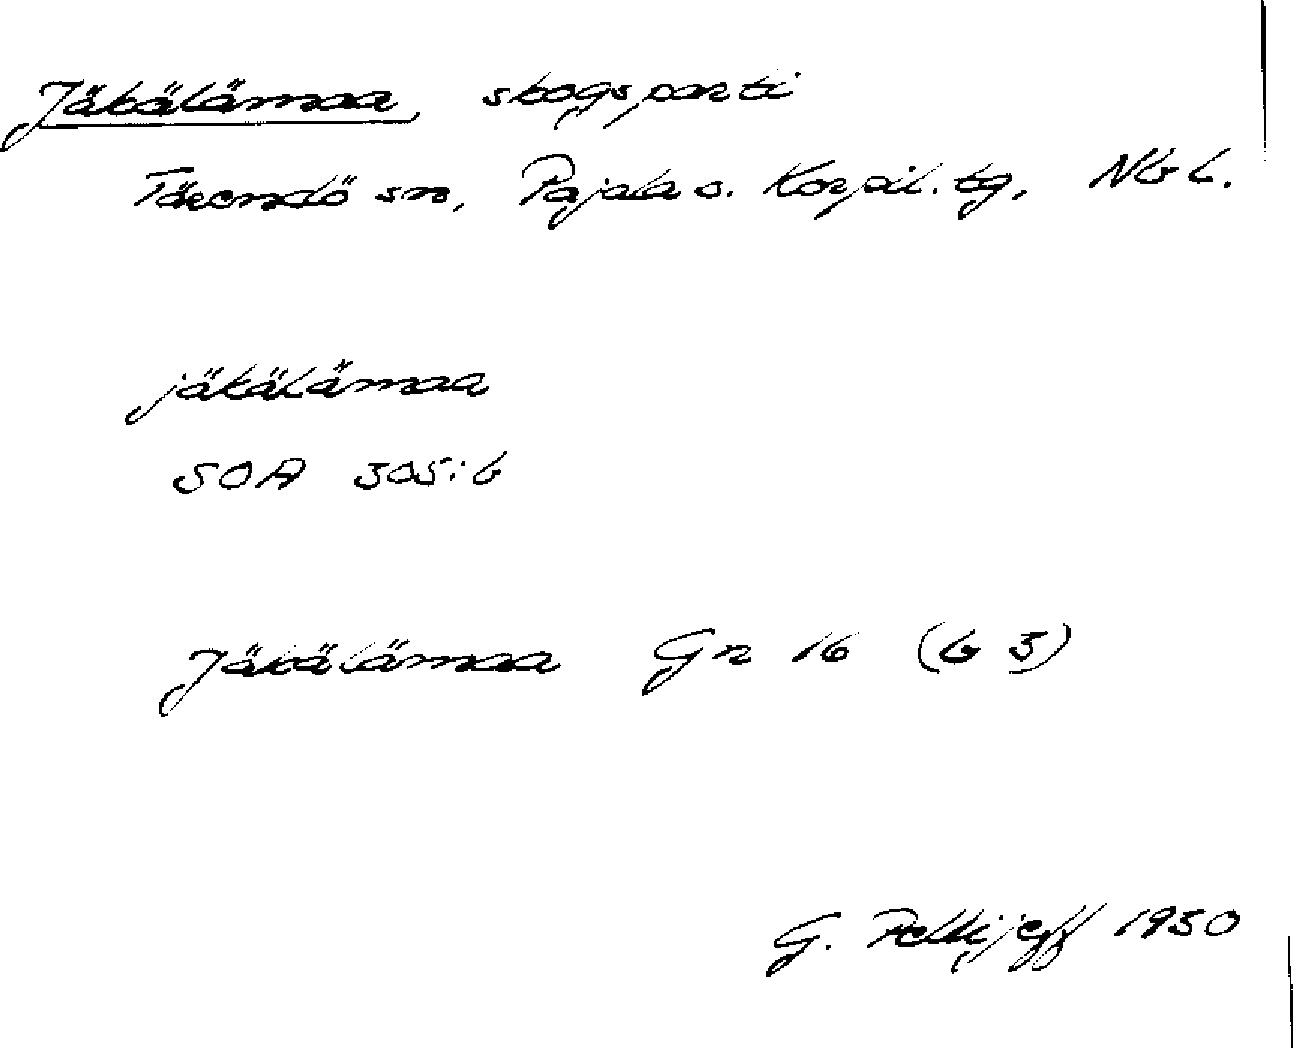 Jäkälämaa, skogsparti
Tärendö sn, Pajala o. Korpil. tg, Nb L.
jäkälämaa
SOA 305:6
Jäkälämaa Gr 16 (b 3)
G. Pellijeff 1950